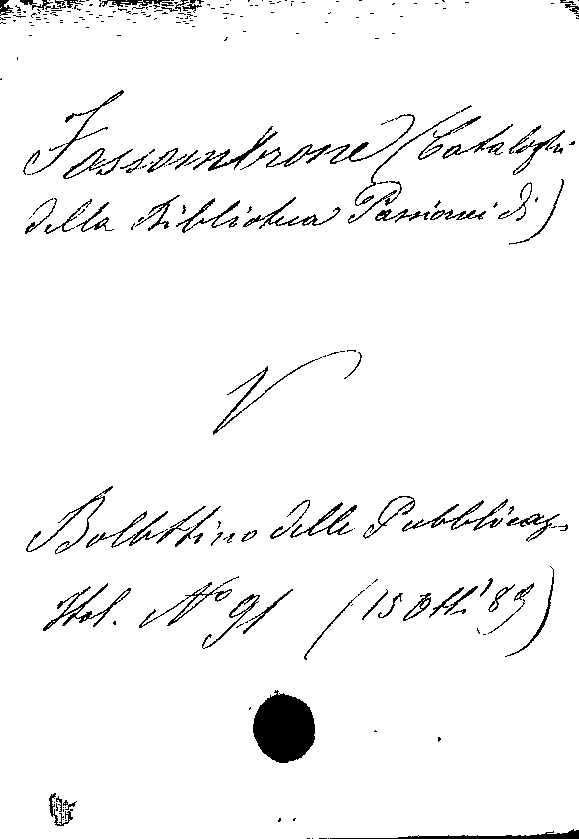 Fossombrone (Cataloghi
della Biblioteca Passionei di)
V
Bollettino delle Pubblicaz.
Ital. No 91 (15 Ott. '89)